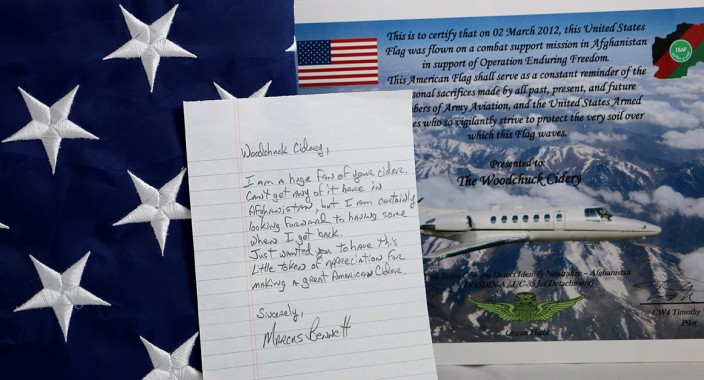 Woodchuck Cidery,
I am a huge fan of your ciders.
Can't get any of it here in
Afghanistan, but I am certainly
looking forward to having some
when I get back.
Just wanted you to have this
little token of appreciation for
making a great American Cider.
Sincerely,
Marcus Bennett
This is to certify that on 02 March 2012, this United States
Flag was flown on a combat support mission in Afghanistan
in support of Operation Enduring Freedom.
This American Flag shall serve as a constant reminder of the
sonal sacrifices made by all past, present, and future
bers of Army Aviation, and the United States Armed
es who so vigilantly strive to protect the very soil over
which this Flag waves.
Presented to:
The Woodchuck Cidery
ISAF
Detect Identify Neutralize - Afghanistan
Jet Detachment
CW4 Timothy
Pilot